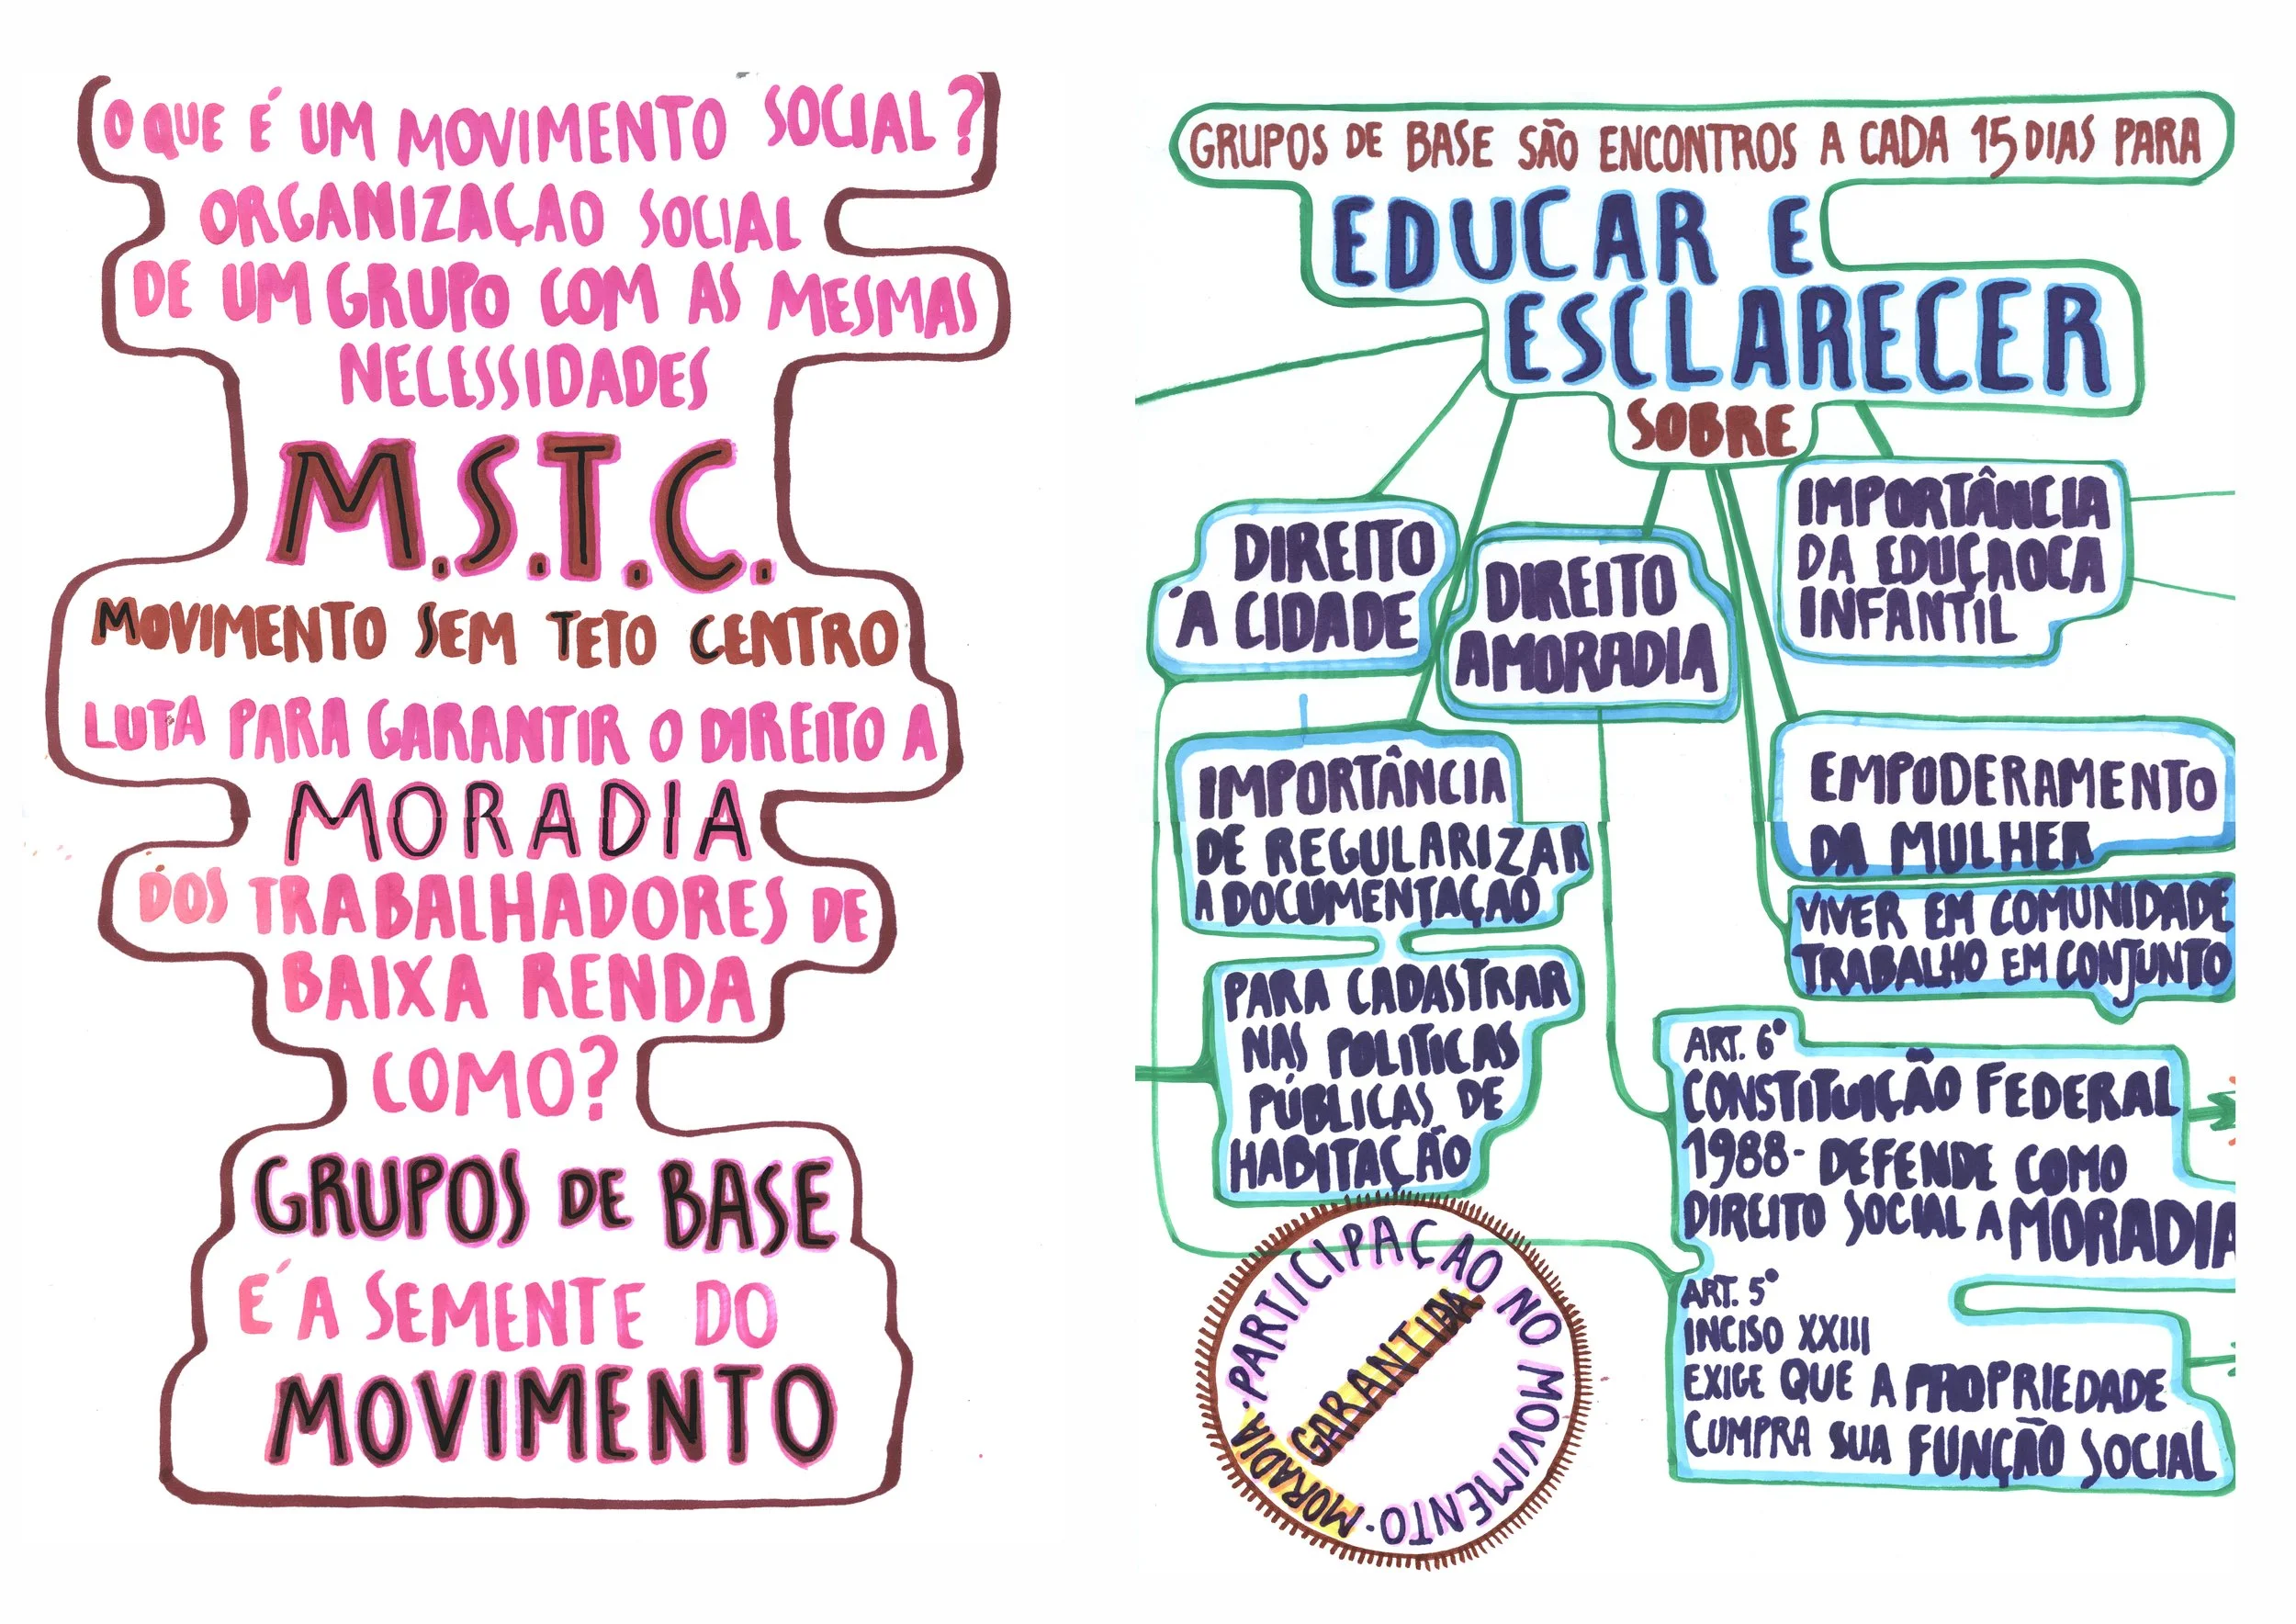 O QUE É UM MOVIMENTO SOCIAL?
ORGANIZAÇAO SOCIAL
DE UM GRUPO COM AS MESMAS
NECESSIDADES
M.S.T.C.
MOVIMENTO SEM TETO CENTRO
LUTA PARA GARANTIR O DIREITO A
MORADIA
DOS TRABALHADORES DE
BAIXA RENDA
COMO?
GRUPOS DE BASE
É A SEMENTE DO
MOVIMENTO
GRUPOS DE BASE SÃO ENCONTROS A CADA 15 DIAS PARA
EDUCAR E
ESCLARECER
SOBRE
DIREITO
À CIDADE
DIREITO
A MORADIA
IMPORTÂNCIA
DA EDUÇAOCA
INFANTIL
IMPORTÂNCIA
DE REGULARIZAR
A DOCUMENTAÇAO
PARA CADASTRAR
NAS POLITICAS
PÚBLICAS DE
HABITAÇÃO
EMPODERAMENTO
DA MULHER
VIVER EM COMUNIDADE
TRABALHO EM CONJUNTO
ART. 6º
CONSTITUIÇÃO FEDERAL
1988- DEFENDE COMO
DIREITO SOCIAL A MORADIA
ART. 5º
INCISO XXIII
EXIGE QUE A PROPRIEDADE
CUMPRA SUA FUNÇÃO SOCIAL
PARTICIPAÇAO NO MOVIMENTO · MORADIA ·
GARANTIDA